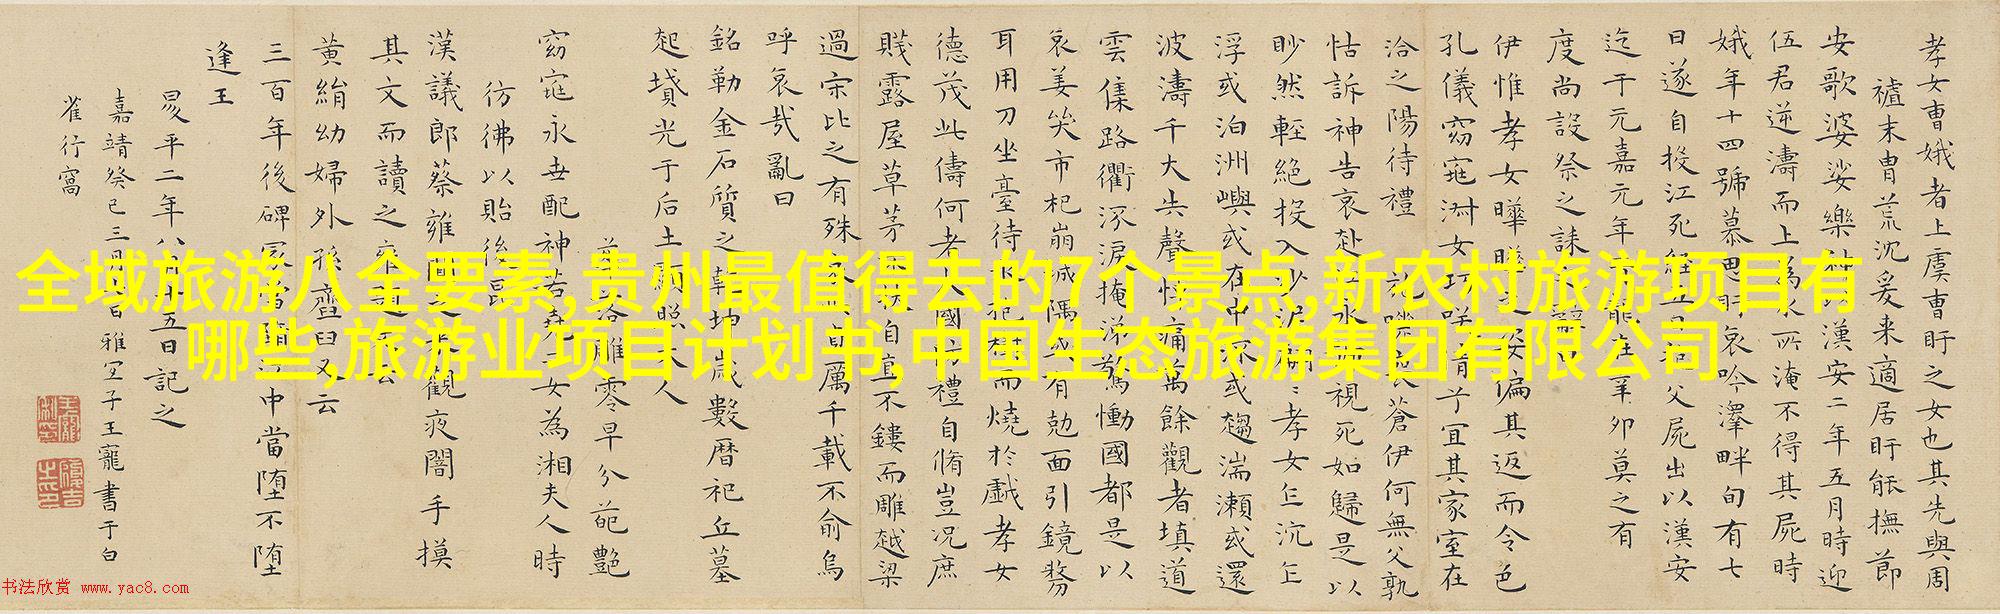 孝女曹娥者上虞曹盱之女也其先與周
禮末胄荒沈爰来適居盱能撫節
安歌婆娑樂神以漢安二年五月時迎
伍君逆濤而上為水所淹不得其屍時
娥年十四號慕思盱哀吟澤畔旬有七
日遂自投江死經五日抱父屍出以漢安
迄于元嘉元年青龍在辛卯莫之有
度尚設祭之誄辭曰
伊惟孝女曄曄之姿偏其返而令色
孔儀窈窕淑女巧咲倩兮宜其家室在
洽之陽待禮蒼伊何無父孰
怙訴神告哀赴江永號視死如歸是以
眇然輕絕投入沙泥翩〻孝女乍沉乍
浮或泊洲嶼或在中流或趨湍瀨或還
波濤千夫失聲悼痛萬餘觀者填道
雲集路衢流淚掩涕驚慟國都是以
哀姜哭市杞崩城隅或有剋面引鏡剺
耳用刀坐臺待水抱樹而燒於戲孝女
德茂此儔何者大國防禮自脩豈況庶
賤露屋草茅不扶自直不鏤而雕越梁
過宋比之有殊哀此貞厲千載不渝嗚
呼哀哉亂曰
銘勒金石質之乾坤歲數曆祀丘墓
起墳光于后土顯照夫人
落雕零早分葩艷
窈窕永世配神若堯二女為湘夫人時
彷彿以貽後昆
漢議郎蔡雍聞之來觀夜闇手摸
其文而讀之雍題文云
黃絹幼婦外孫齏臼又云
三百年後碑冢當墮江中當墮不墮
逢王
昇平二年八月十五日記之
嘉靖癸巳三月日雅宜子王寵書于白
雀行窩
全域旅游八全要素,贵州最值得去的7个景点,新农村旅游项目有
哪些,旅游业项目计划书,中国生态旅游集团有限公司
书法欣赏 www.yac8.com